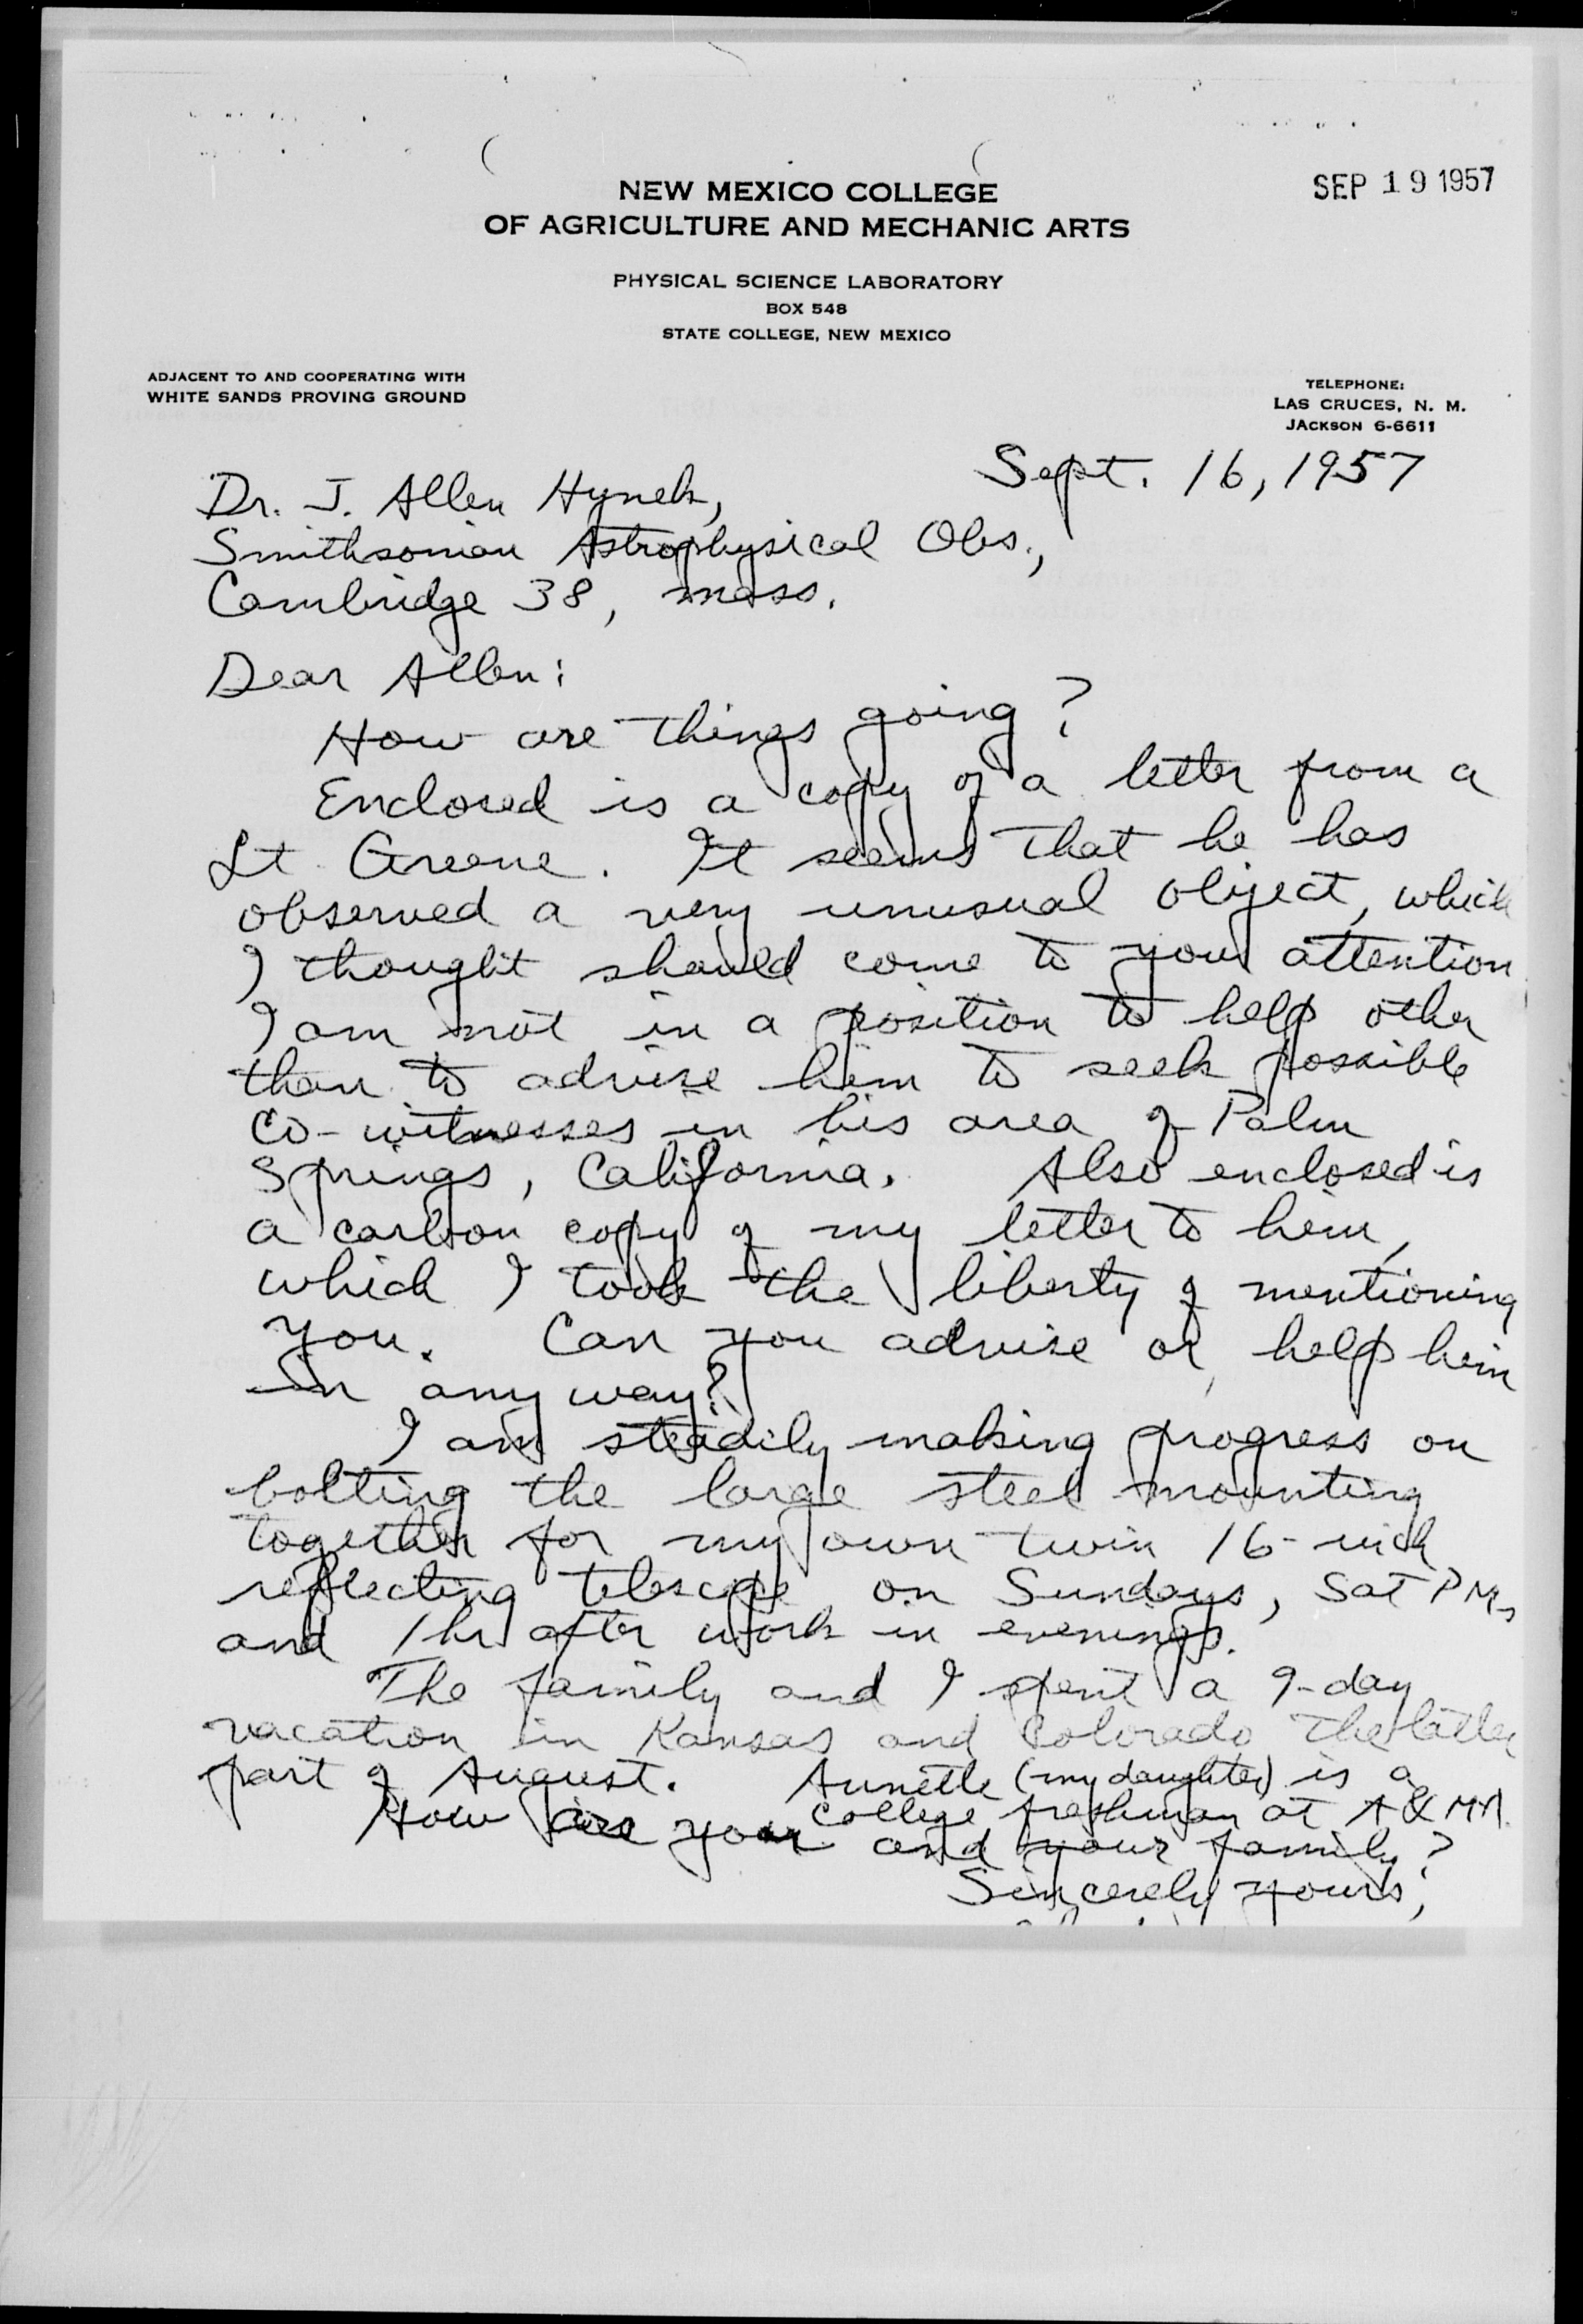 SEP 19 1957
NEW MEXICO COLLEGE
OF AGRICULTURE AND MECHANIC ARTS
PHYSICAL SCIENCE LABORATORY
BOX 548
STATE COLLEGE, NEW MEXICO
ADJACENT TO AND COOPERATING WITH
WHITE SANDS PROVING GROUND
TELEPHONE:
LAS CRUCES, N. M.
JACKSON 6-6611
Sept. 16, 1957
Dr. J. Allen Hynek,
Smithsonian Astrophysical Obs.,
Cambridge 38, Mass.
Dear Allen:
How are things going?
Enclosed is a copy of a letter from a
Lt. Greene. It seems that he has
observed a very unusual object, which
I thought should come to your attention
I am not in a position to help other
than to advise him to seek possible
co-witnesses in his area of Palm
Springs, California. Also enclosed is
a carbon copy of my letter to him,
which I took the liberty of mentioning
you. Can you advise or help him
in any way?
I am steadily making progress on
bolting the large steel mounting
together for my own twin 16-inch
reflecting telescope on Sundays, Sat PMs
and 1 hr after work in evenings.
The family and I spent a 9-day
vacation in Kansas and Colorado the latter
part of August. Annette (my daughter) is a
college freshman at A&MA.
How are you and your family?
Sincerely yours,